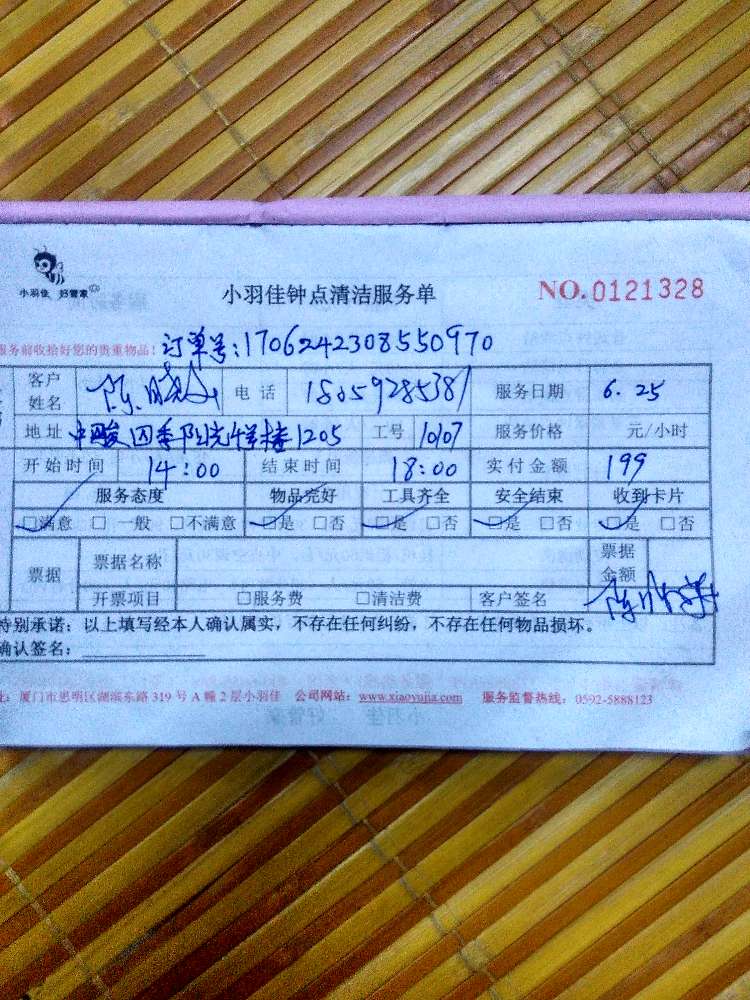 小羽佳 好管家
小羽佳钟点清洁服务单 NO.0121328
服务前收拾好您的贵重物品! 订单号:1706242308550970
客户姓名 陈晓 电话 18059285381 服务日期 6.25
地址 中骏四季阳光 楼1205 工号 1007 服务价格 元/小时
开始时间 14:00 结束时间 18:00 实付金额 199
服务态度 物品完好 工具齐全 安全结束 收到卡片
□满意 □一般 □不满意 □是 □否 □是 □否 □是 □否 □是 □否
票据 票据名称 票据金额
开票项目 □服务费 □清洁费 客户签名 陈
特别承诺：以上填写经本人确认属实，不存在任何纠纷，不存在任何物品损坏。
确认签名：
址：厦门市思明区湖滨东路 319 号 A 幢 2 层小羽佳 公司网站：www.xiaoyujia.com 服务监督热线：0592-5888123